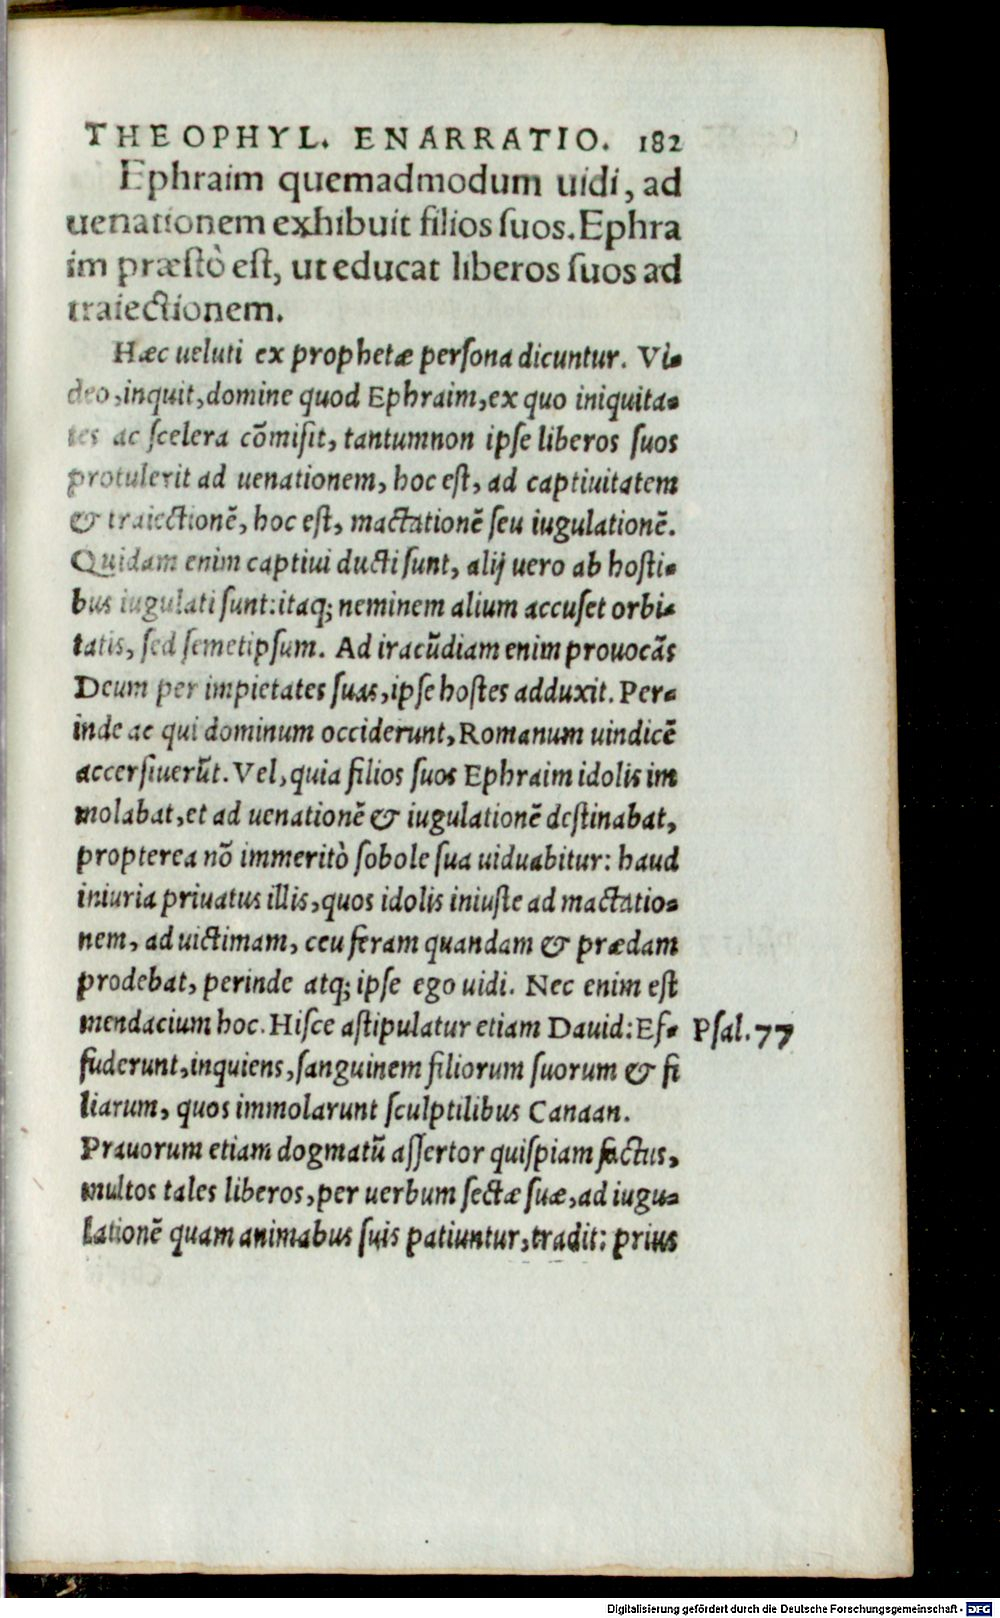 THEOPHYL. ENARRATIO. 182
Ephraim quemadmodum uidi, ad
uenationem exhibuit filios ſuos. Ephra
im præſtò eſt, ut educat liberos ſuos ad
traiectionem.
Hæc ueluti ex prophetæ perſona dicuntur. Vi-
deo, inquit, domine quod Ephraim, ex quo iniquita-
tes ac ſcelera cõmiſit, tantumnon ipſe liberos ſuos
protulerit ad uenationem, hoc eſt, ad captiuitatem
& traiectionẽ, hoc eſt, mactationẽ ſeu iugulationẽ.
Quidam enim captiui ducti ſunt, alij uero ab hoſti-
bus iugulati ſunt: itaq; neminem alium accuſet orbi-
tatis, ſed ſemetipſum. Ad iracũdiam enim prouocãs
Deum per impietates ſuas, ipſe hoſtes adduxit. Per-
inde ac qui dominum occiderunt, Romanum uindicẽ
accerſiuerũt. Vel, quia filios ſuos Ephraim idolis im
molabat, et ad uenationẽ & iugulationẽ deſtinabat,
propterea nõ immeritò ſobole ſua uiduabitur: haud
iniuria priuatus illis, quos idolis iniuſte ad mactatio-
nem, ad uictimam, ceu feram quandam & prædam
prodebat, perinde atq; ipſe ego uidi. Nec enim eſt
mendacium hoc. Hiſce aſtipulatur etiam Dauid: Ef- Pſal. 77
fuderunt, inquiens, ſanguinem filiorum ſuorum & fi
liarum, quos immolarunt ſculptilibus Canaan.
Prauorum etiam dogmatũ aſſertor quiſpiam factus,
multos tales liberos, per uerbum ſectæ ſuæ, ad iugu-
lationẽ quam animabus ſuis patiuntur, tradit: prius
Digitalisierung gefördert durch die Deutsche Forschungsgemeinschaft - DFG